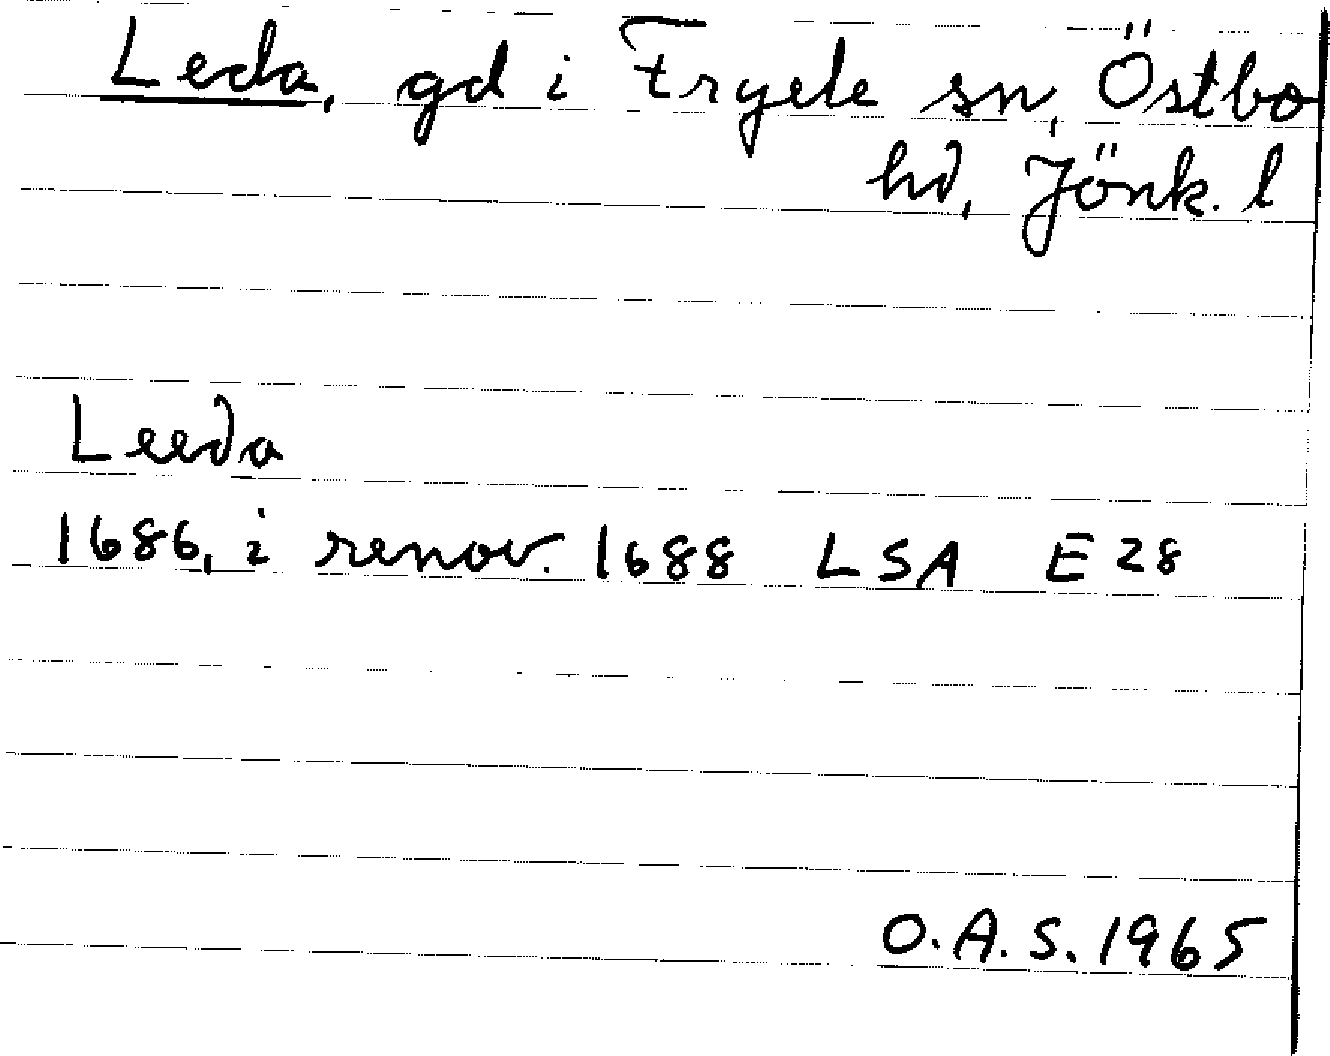 Leda, gd i Fryele sn, Östbo
hd, Jönk. l
Leeda
1686, i renov. 1688 LSA E 28
O.A.S. 1965